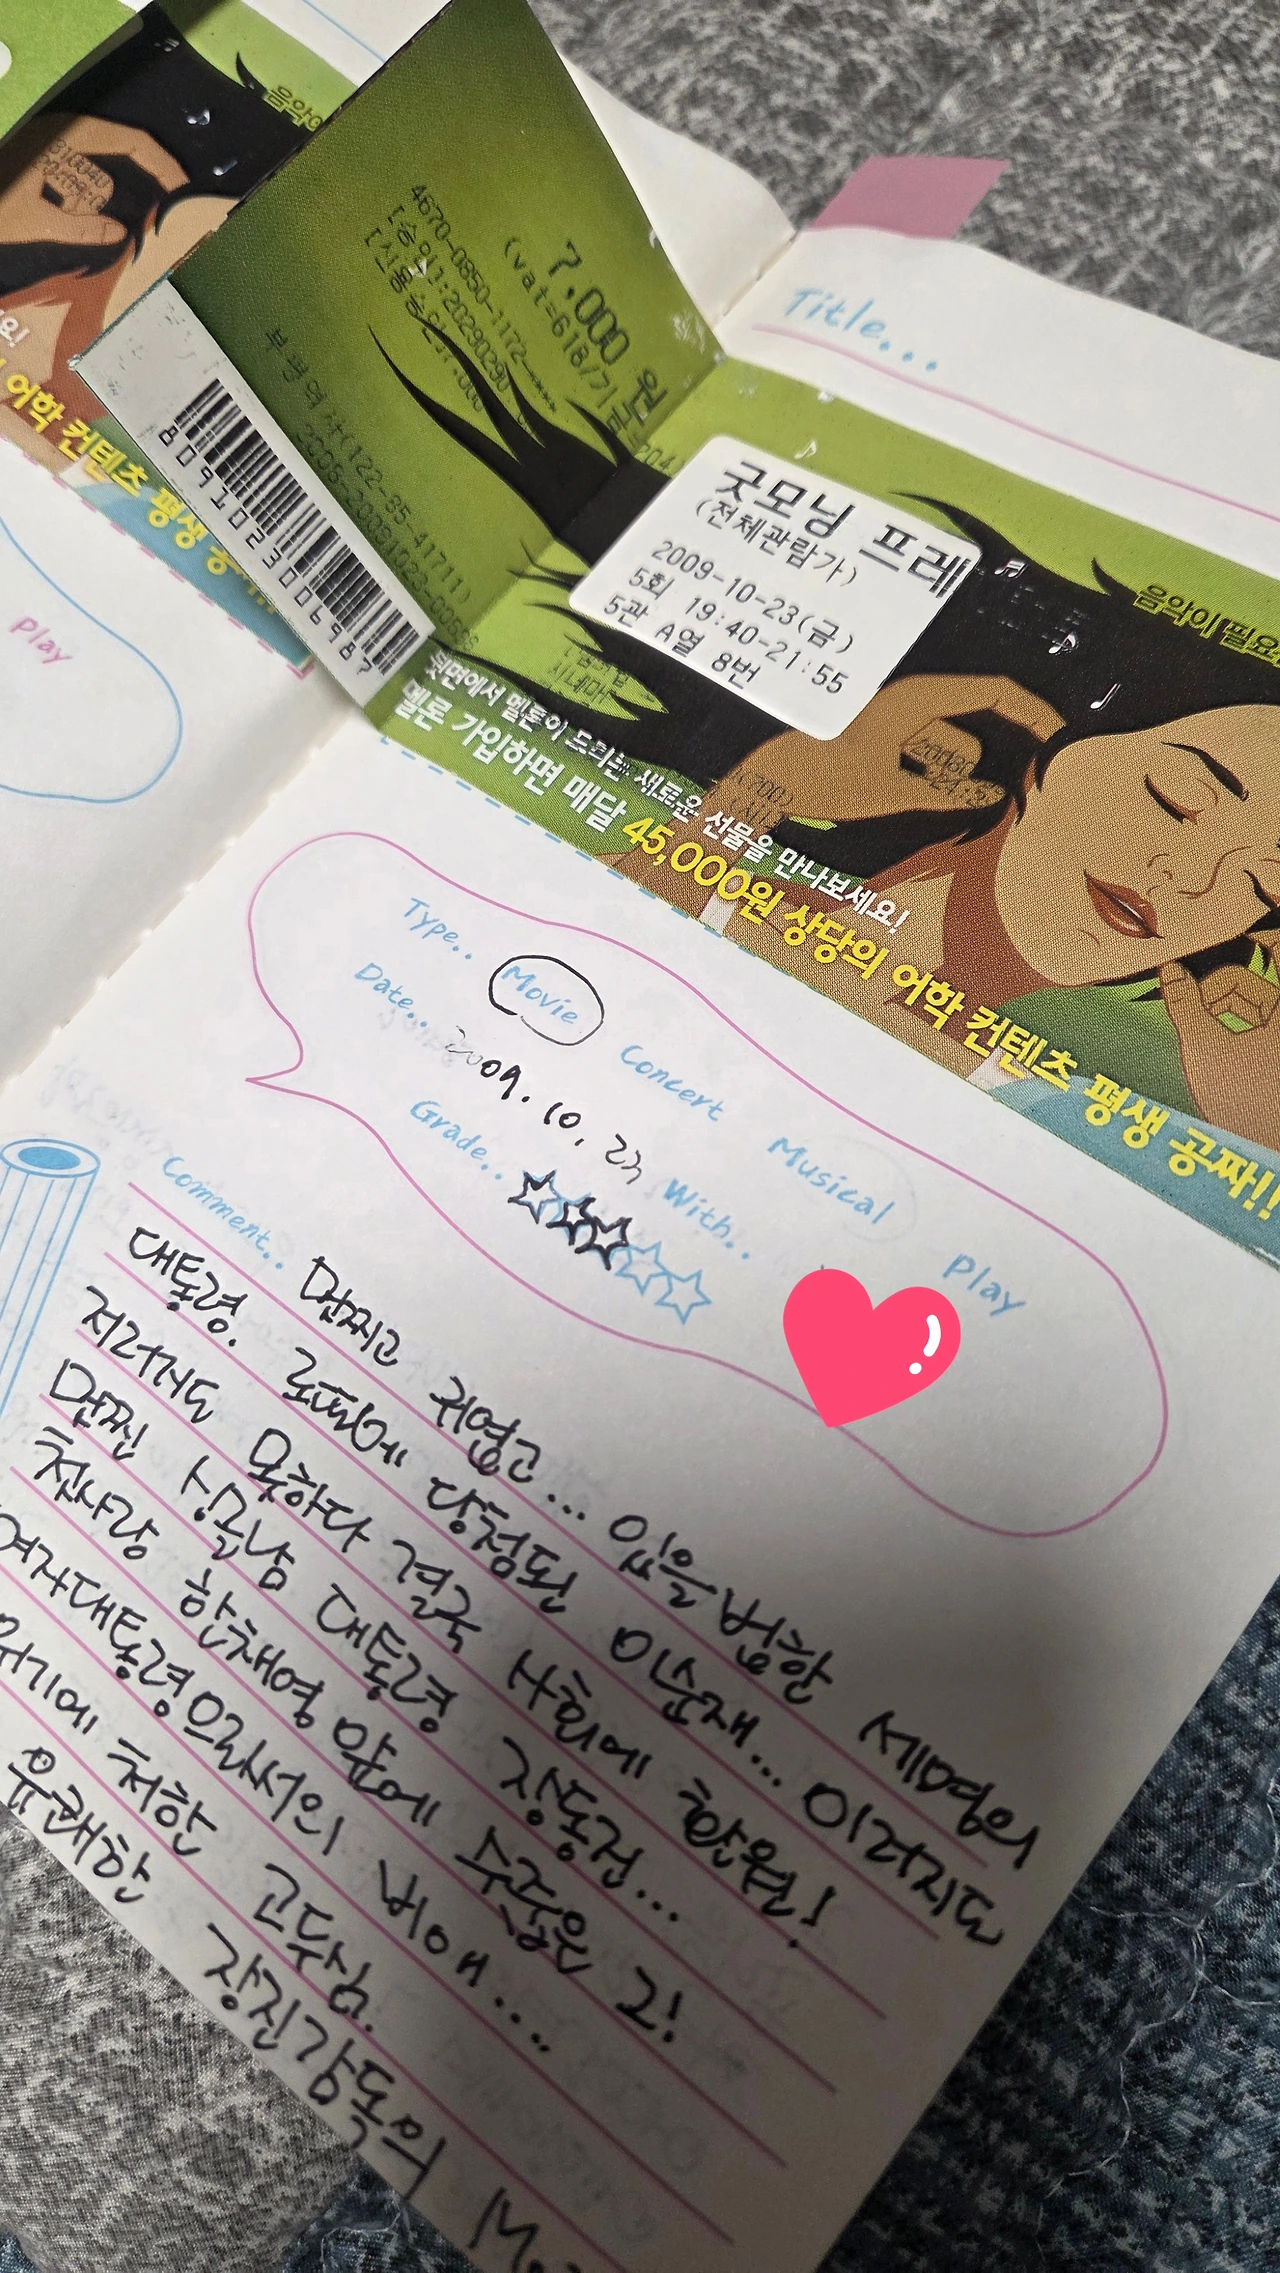 음악이
어학 컨텐츠 평생 공짜!!
Play
7,000 원
(vat=618/기금=204
4670-0850-1172-****
[승인1:20290290
부평역사(122-85-41711)
8091023006987
Title...
굿모닝 프레
(전체관람가)
2009-10-23(금)
5회 19:40-21:55
5관 A열 8번
음악이 필요
뒷면에서 멜론이 드리는 새로운 선물을 만나보세요!
멜론 가입하면 매달 45,000원 상당의 어학 컨텐츠 평생 공짜!!
Type.. Movie Concert Musical Play
Date.. 2009. 10. 23 With..
Grade..
Comment.. 멋찌고 귀엽고... 있을법한 세명의
대통령. 로또에 당첨된 이순재... 이러지도
저러지도 못하다 결국 사회에 환원!
멋찐 싱글남 대통령 장동건...
첫사랑 한채영 앞에 수줍은 그!
여자대통령으로서의 비애....
위기에 처한 고두심.
유쾌한 장진감독의